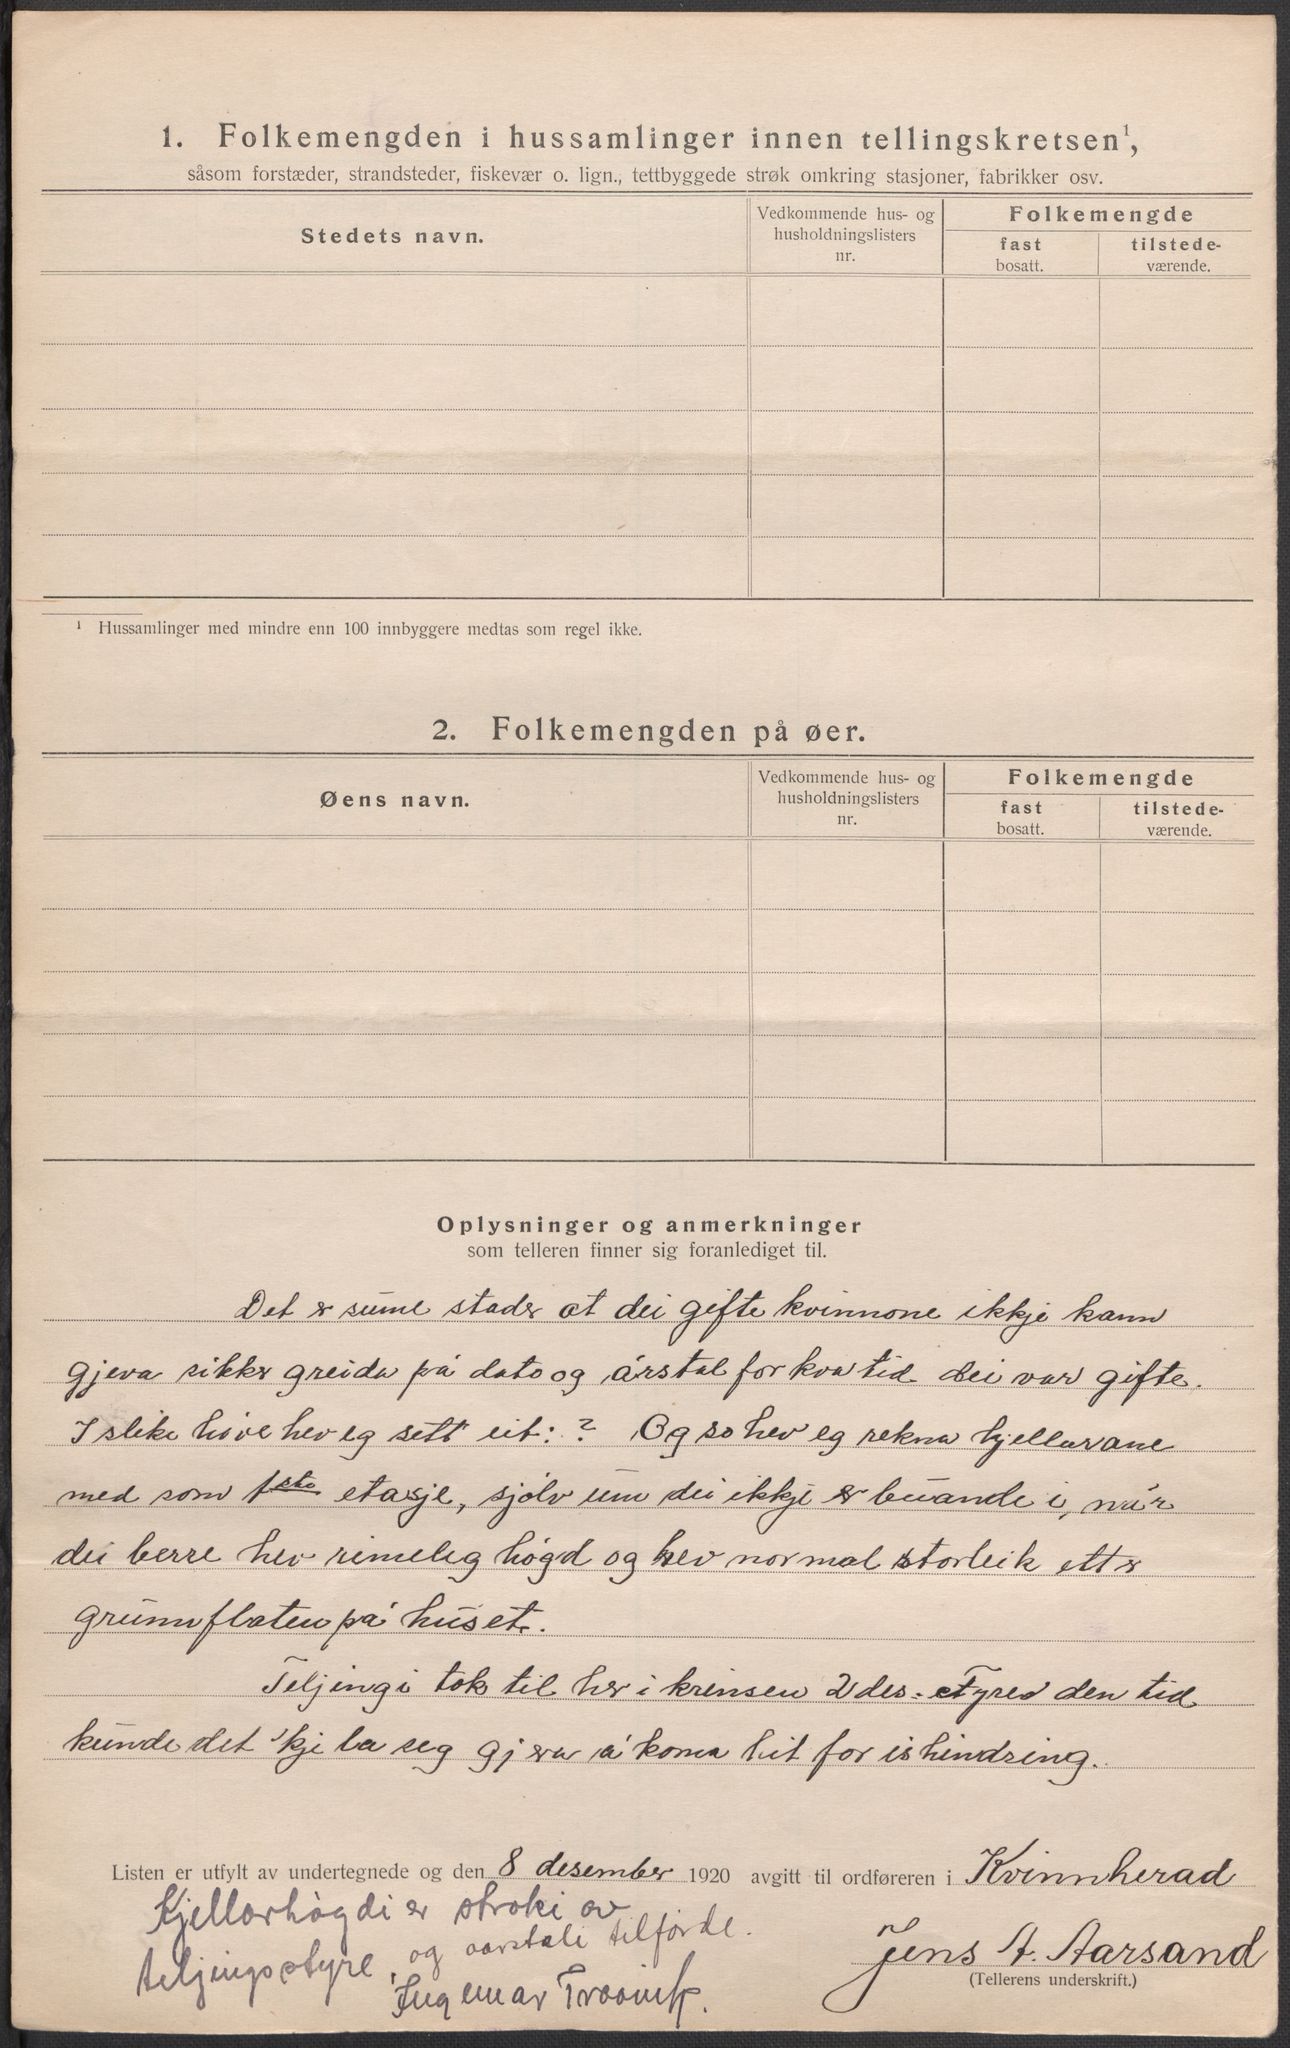 1. Folkemengden i hussamlinger innen tellingskretsen¹,
såsom forstæder, strandsteder, fiskevær o. lign., tettbyggede strøk omkring stasjoner, fabrikker osv.
Stedets navn.
Vedkommende hus- og
husholdningslisters
nr.
Folkemengde
fast
bosatt.
tilstede-
værende.
¹ Hussamlinger med mindre enn 100 innbyggere medtas som regel ikke.
2. Folkemengden på øer.
Øens navn.
Vedkommende hus- og
husholdningslisters
nr.
Folkemengde
fast
bosatt.
tilstede-
værende.
Oplysninger og anmerkninger
som telleren finner sig foranlediget til.
Det er sume stader at dei gifte kvinnone ikkje kann
gjeva sikker greida på dato og årstal for kva tid dei var gifte.
I slike høve hev eg sett eit: ? Og so hev eg rekna kjellarane
med som 1ste etasje, sjølv um dei ikkje er buande i, når
dei berre hev rimeleg høgd og hev normal storleik etter
grunnflaten på huset.
Teljingi tok til her i krinsen 2 des. Fyrev den tid
kunde det 'kje la seg gjera å koma hit for ishindring.
Listen er utfylt av undertegnede og den 8 desember 1920 avgitt til ordføreren i Kvinnherad
Kjellarhøgdi er stroki av
teljingsstyre, og aarstali tilførde.
Jens A. Aarsand
(Tellerens underskrift.)
Ingemar